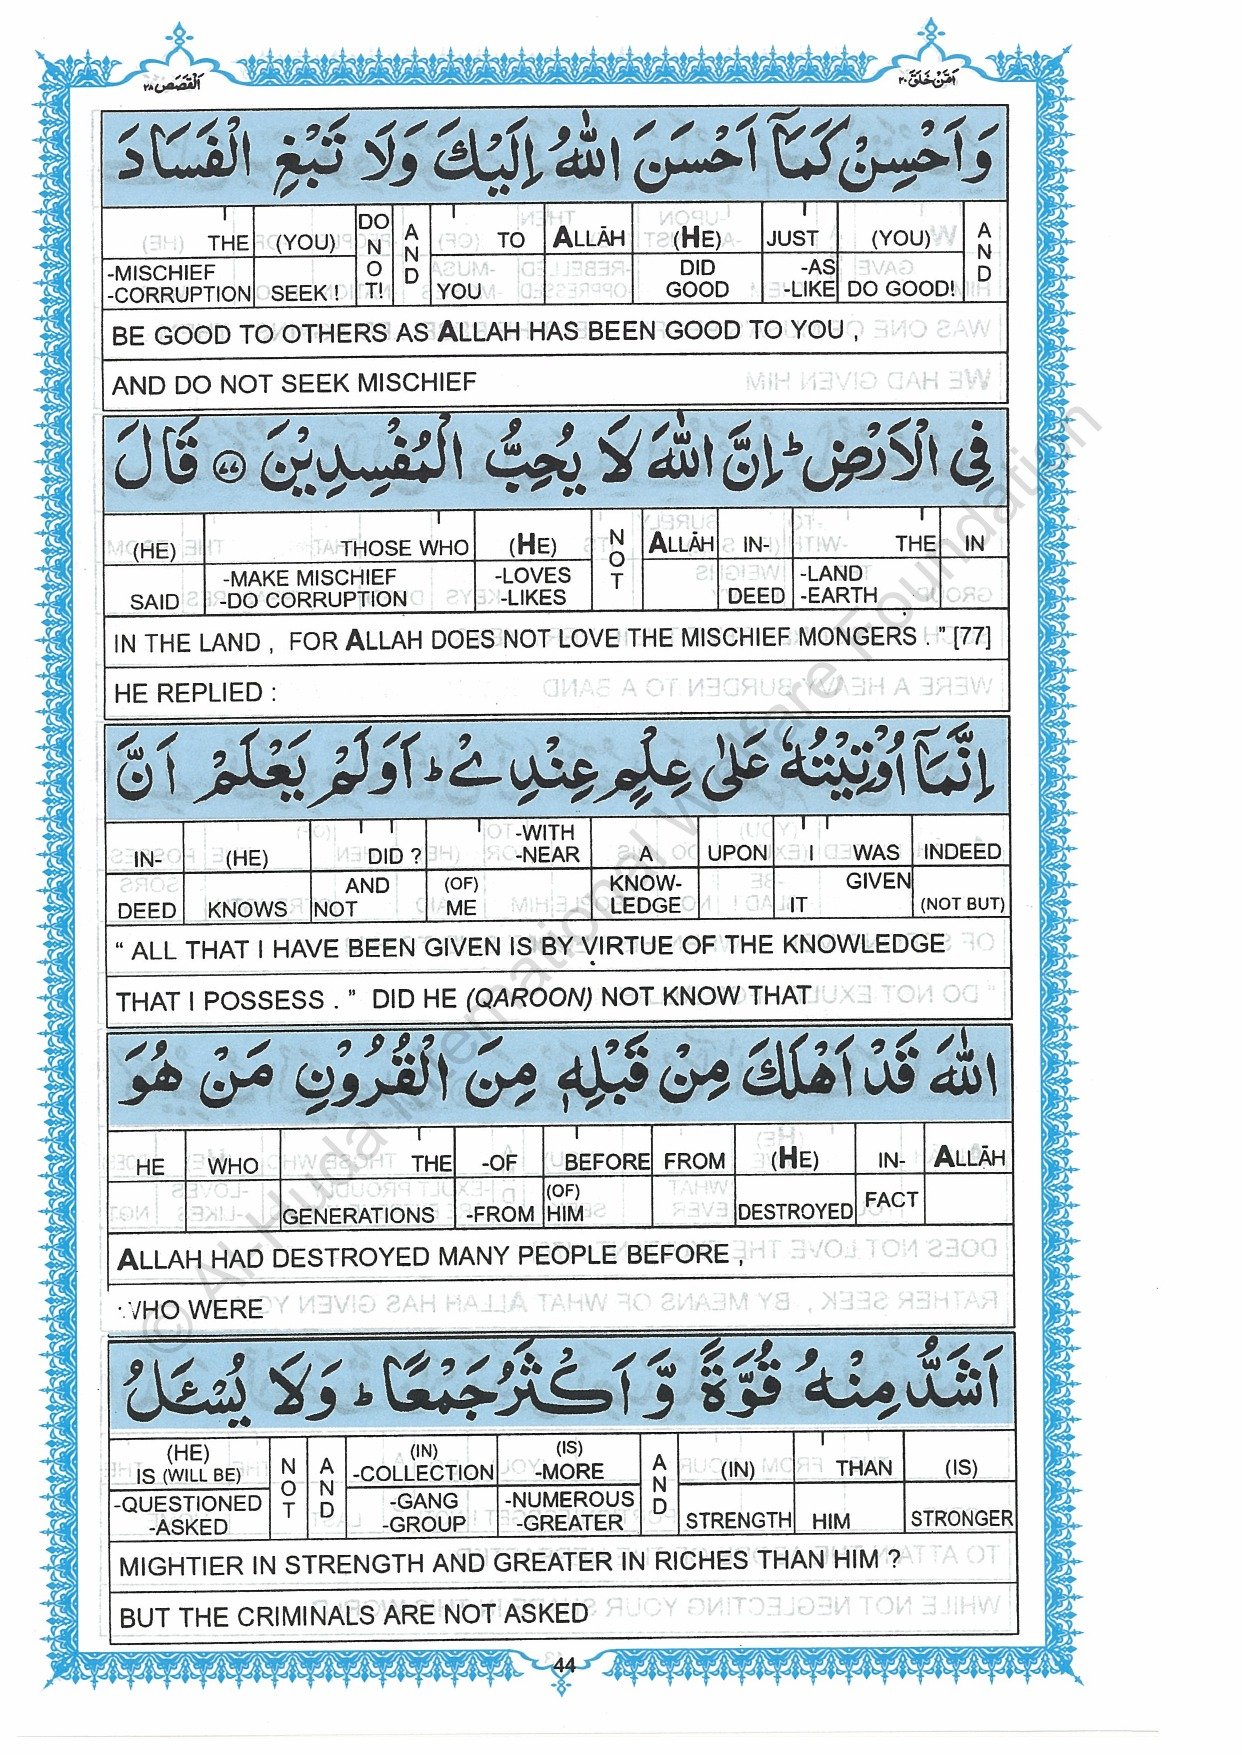 اَلْقَصَص ٢٨
اَمَّنْ خَلَقَ ٢٠
وَاَحْسِنْ كَمَآ اَحْسَنَ اللّٰهُ اِلَيْكَ وَلَا تَبْغِ الْفَسَادَ
THE (YOU) DO NOT! AND TO ALLĀH (HE) JUST (YOU) AND
-MISCHIEF -CORRUPTION SEEK ! YOU DID GOOD -AS -LIKE DO GOOD!
BE GOOD TO OTHERS AS ALLAH HAS BEEN GOOD TO YOU ,
AND DO NOT SEEK MISCHIEF
فِي الْاَرْضِ ؕ اِنَّ اللّٰهَ لَا يُحِبُّ الْمُفْسِدِيْنَ ۝٧٧ قَالَ
(HE) THOSE WHO (HE) NOT ALLĀH IN- THE IN
SAID -MAKE MISCHIEF -DO CORRUPTION -LOVES -LIKES DEED -LAND -EARTH
IN THE LAND , FOR ALLAH DOES NOT LOVE THE MISCHIEF MONGERS . ” [77]
HE REPLIED :
اِنَّمَآ اُوْتِيْتُهٗ عَلٰى عِلْمٍ عِنْدِيْ ؕ اَوَلَمْ يَعْلَمْ اَنَّ
IN- (HE) DID ? -WITH -NEAR A UPON I WAS INDEED
DEED KNOWS AND NOT (OF) ME KNOW- LEDGE IT GIVEN (NOT BUT)
“ ALL THAT I HAVE BEEN GIVEN IS BY VIRTUE OF THE KNOWLEDGE
THAT I POSSESS . ” DID HE (QAROON) NOT KNOW THAT
اللّٰهَ قَدْ اَهْلَكَ مِنْ قَبْلِهٖ مِنَ الْقُرُوْنِ مَنْ هُوَ
HE WHO THE -OF BEFORE FROM (HE) IN- ALLĀH
GENERATIONS -FROM (OF) HIM DESTROYED FACT
ALLAH HAD DESTROYED MANY PEOPLE BEFORE ,
WHO WERE
اَشَدُّ مِنْهُ قُوَّةً وَّاَكْثَرُ جَمْعًا ؕ وَلَا يُسْـَٔلُ
(HE) IS (WILL BE) NOT AND (IN) -COLLECTION (IS) -MORE AND (IN) THAN (IS)
-QUESTIONED -ASKED -GANG -GROUP -NUMEROUS -GREATER STRENGTH HIM STRONGER
MIGHTIER IN STRENGTH AND GREATER IN RICHES THAN HIM ?
BUT THE CRIMINALS ARE NOT ASKED
44
© Al-Huda International Welfare Foundation